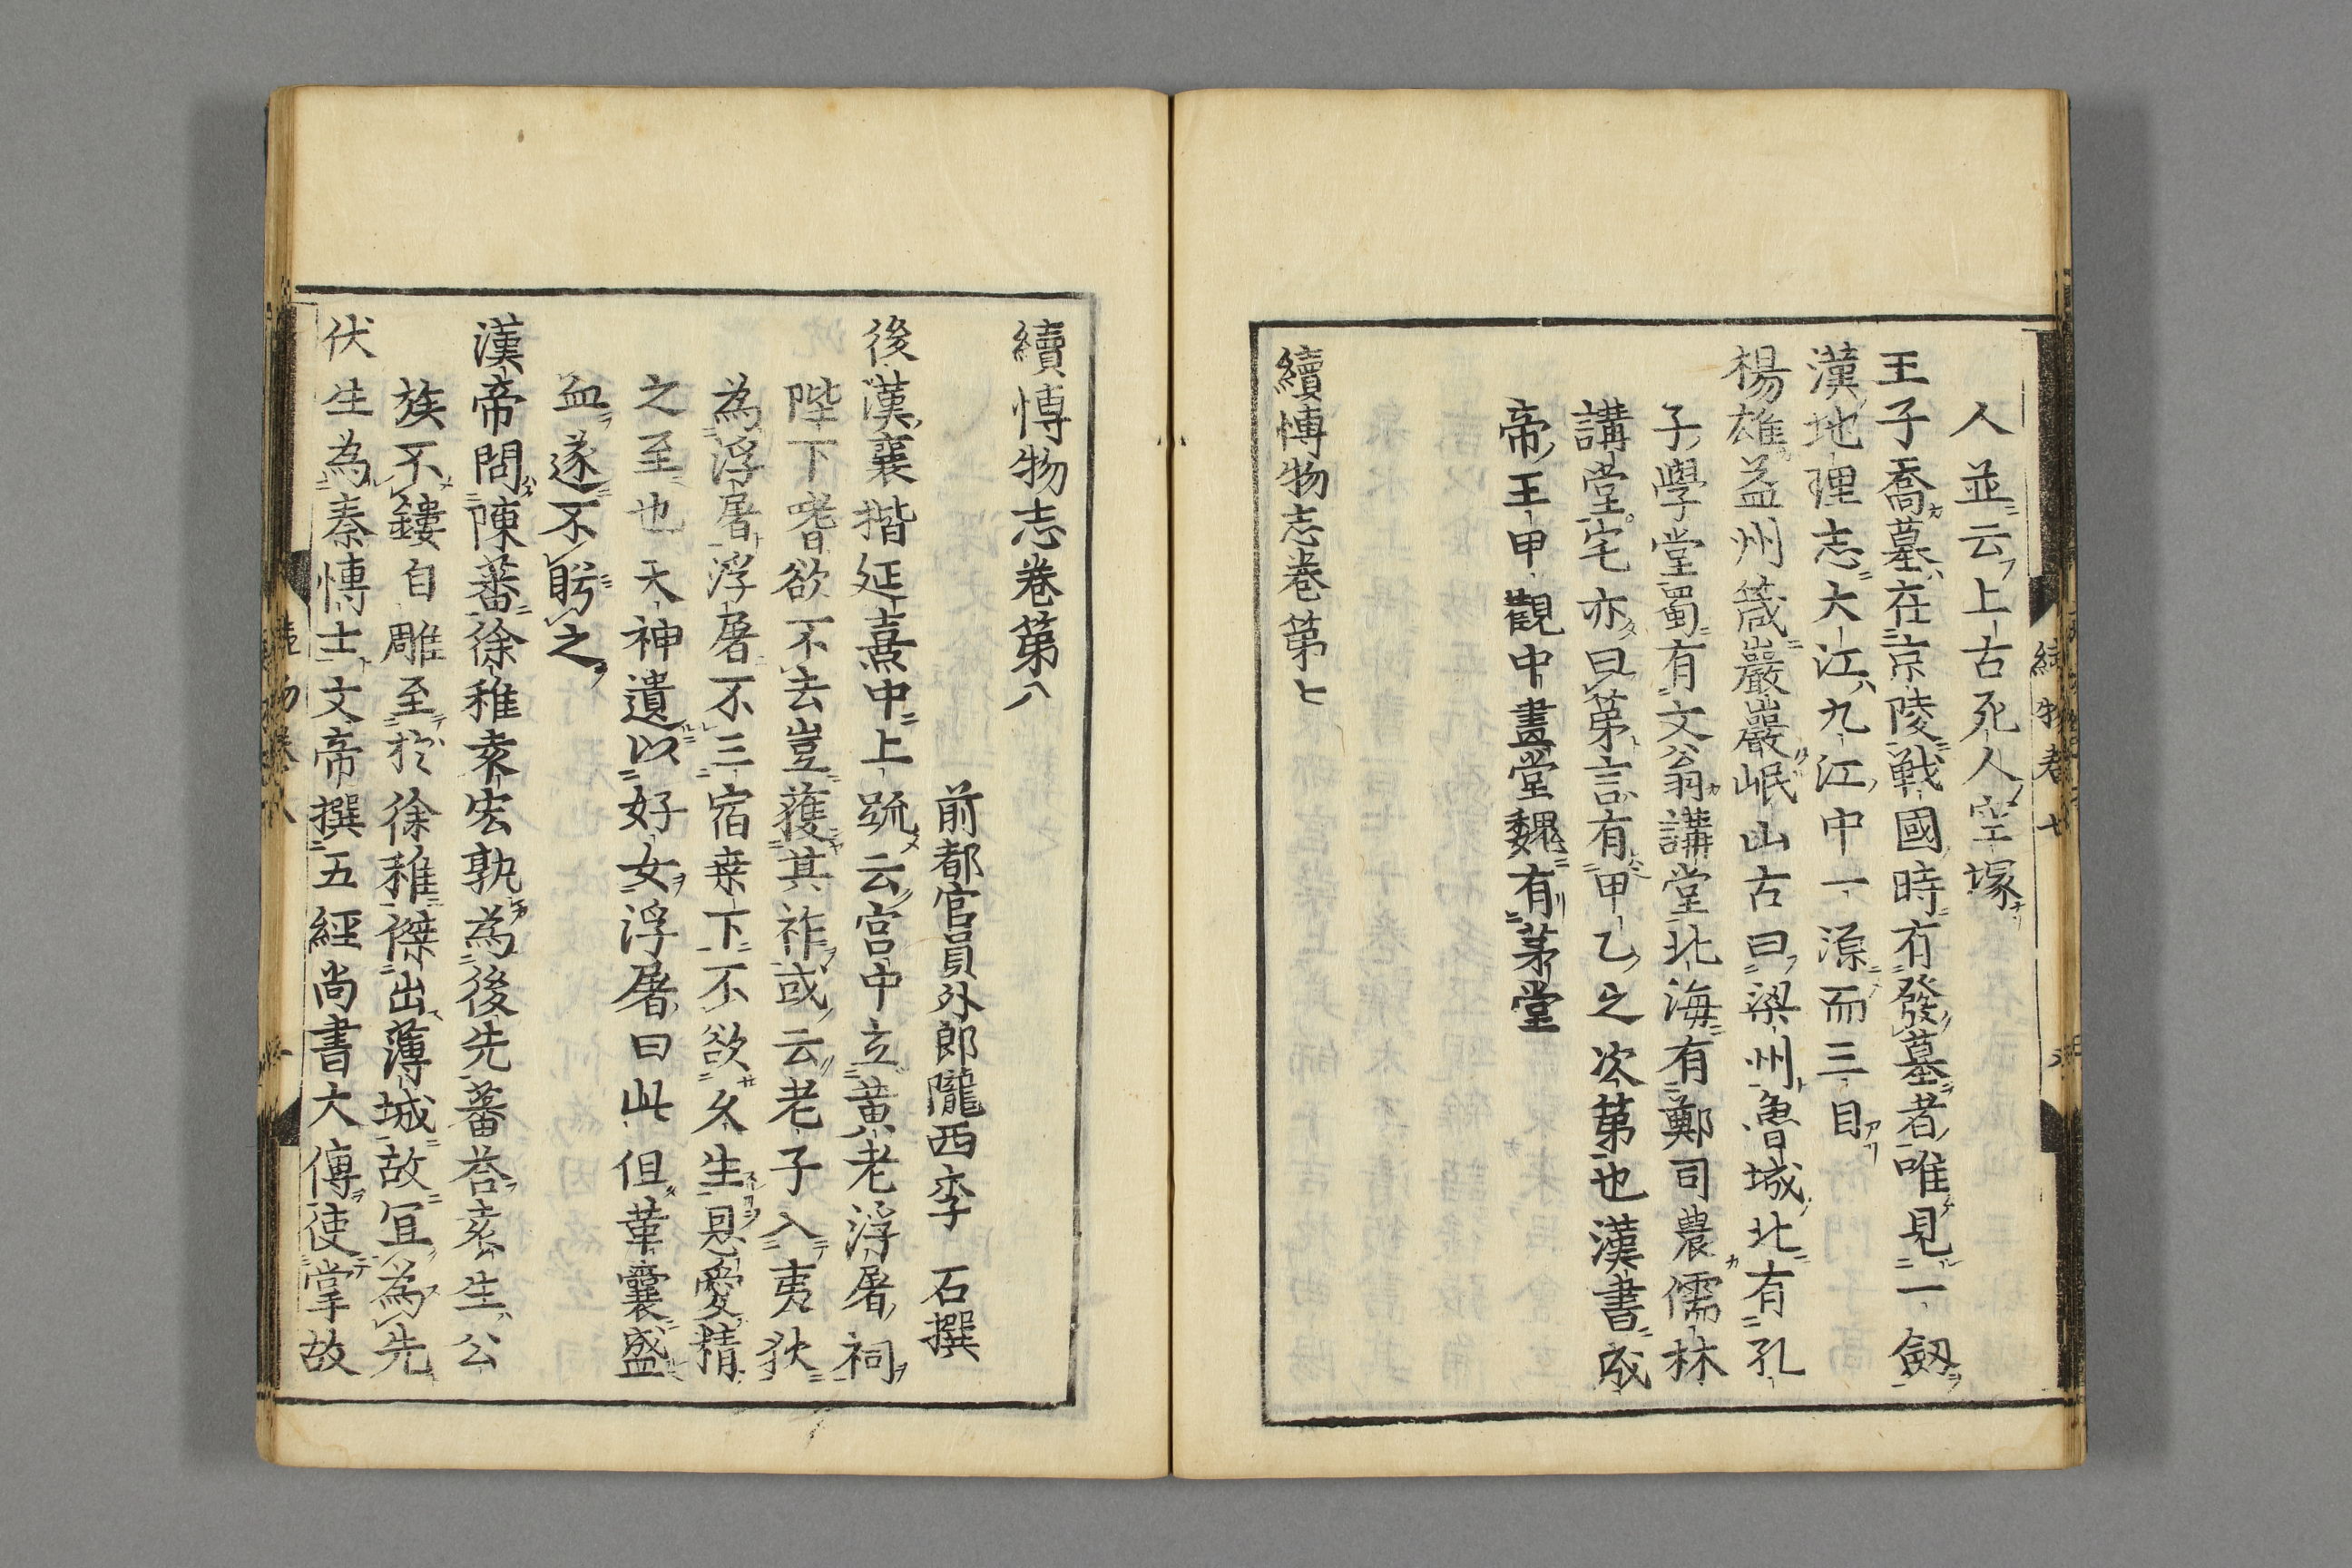 人並云上古死人空塚
王子喬墓在京陵戰國時有發墓者唯見一劔
漢地理志大江九江中一源而三目
楊雄益州箴巖巖岷山古曰梁州魯城北有孔
子學堂蜀有文翁講堂北海有鄭司農儒林
講堂宅亦曰第言有甲乙之次第也漢書成
帝王甲觀中畫堂魏有茅堂
續博物志卷第七
續博物志卷第八
前都官員外郎隴西李 石撰
後漢襄揩延熹中上疏云宫中立黄老浮屠祠
陛下嗜欲不去豈獲其祚或云老子入夷狄
為浮屠浮屠不三宿桒下不欲久生恩愛精
之至也天神遺以好女浮屠曰此但革囊盛
血遂不眄之
漢帝問陳蕃徐稚袁宏孰為後先蕃荅袁生公
族不鏤自雕至於徐稚傑出薄城故冝為先
伏生為秦博士文帝撰五經尚書大傳使掌故